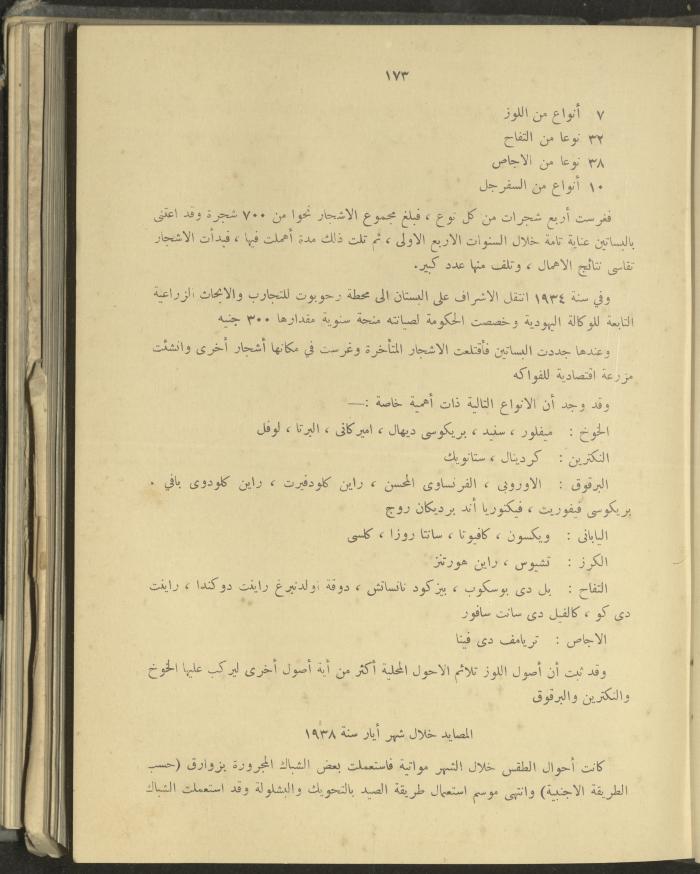 ١٧٣
٧ أنواع من اللوز
٣٢ نوعا من التفاح
٣٨ نوعا من الاجاص
١٠ أنواع من السفرجل
فغرست أربع شجرات من كل نوع ، فبلغ مجموع الاشجار نحوا من ٧٠٠ شجرة وقد اعتنى
بالبساتين عناية تامة خلال السنوات الاربع الاولى ، ثم تلت ذلك مدة أهملت فيها ، فبدأت الاشجار
تقاسى نتائج الاهمال ، وتلف منها عدد كبير.
وفي سنة ١٩٣٤ انتقل الاشراف على البستان الى محطة رحوبوت للتجارب والابحاث الزراعية
التابعة للوكالة اليهودية وخصصت الحكومة لصيانته منحة سنوية مقدارها ٣٠٠ جنيه
وعندها جددت البساتين فأقتلعت الاشجار المتأخرة وغرست في مكانها أشجار أخرى وانشئت
مزرعة اقتصادية للفواكه
وقد وجد أن الانواع التالية ذات أهمية خاصة :—
الخوخ : ميفلور ، سفيد ، بريكوسى ديهال ، اميركانى ، البرتا ، لوفل
النكترين : كردينال ، ستانويك
البرقوق : الاوروبى ، الفرنساوى المحسن ، راين كلودفيرت ، راين كلودوى بافي .
بريكوسى فيفوريت ، فيكتوريا أند برديكان روج
اليابانى : ويكسون ، كافيوتا ، سانتا روزا ، كلسى
الكرز : تشيوس ، راين هورتنز
التفاح : بل دى بوسكوب ، بيزكود نانساتش ، دوقة اولدنبرغ راينت دوكندا ، راينت
دى كو ، كالفيل دى سانت سافور
الاجاص : تريامف دى فينا
وقد ثبت أن أصول اللوز تلائم الاحول المحلية أكثر من أية أصول أخرى ليركب عليها الخوخ
والنكترين والبرقوق
المصايد خلال شهر أيار سنة ١٩٣٨
كانت أحوال الطقس خلال الشهر مواتية فاستعملت بعض الشباك المجرورة بزوارق (حسب
الطريقة الاجنبية) وانتهى موسم استعمال طريقة الصيد بالتحويك والبشلولة وقد استعملت الشباك